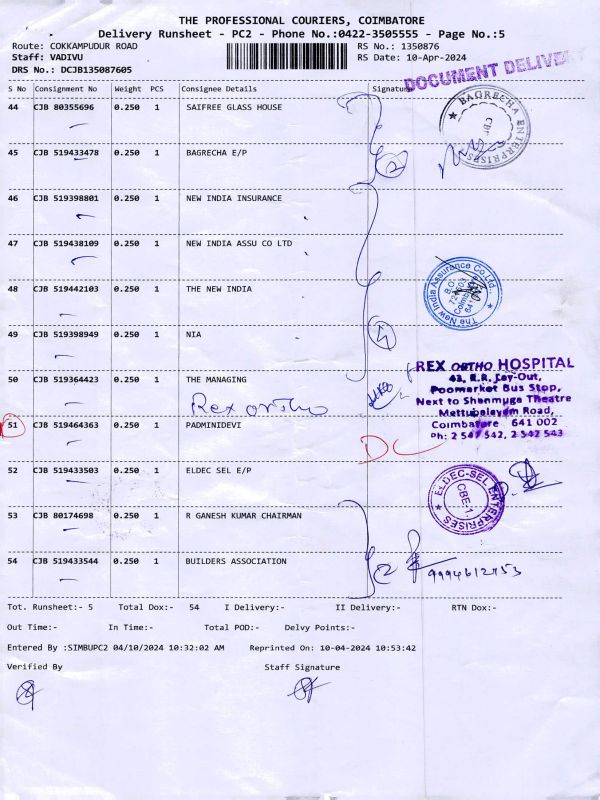 THE PROFESSIONAL COURIERS, COIMBATORE
Delivery Runsheet - PC2 - Phone No.:0422-3505555 - Page No.:5
Route: COKKAMPUDUR ROAD
RS No.: 1350876
Staff: VADIVU
RS Date: 10-Apr-2024
DRS No.: DCJB135087605
DOCUMENT DELIVE
S No Consignment No Weight PCS Consignee Details Signature
44 CJB 80355696 0.250 1 SAIFREE GLASS HOUSE
BAGRECHA ENTERPRISES
45 CJB 519433478 0.250 1 BAGRECHA E/P
2
46 CJB 519398801 0.250 1 NEW INDIA INSURANCE
47 CJB 519438109 0.250 1 NEW INDIA ASSU CO LTD
The New India Assurance Co.Ltd.
48 CJB 519442103 0.250 1 THE NEW INDIA
49 CJB 519398949 0.250 1 NIA
50 CJB 519364423 0.250 1 THE MANAGING
Rex ortho
REX ORTHO HOSPITAL
43, E.R. Lay-Out,
Poomarket Bus Stop,
Next to Shanmuga Theatre
Mettupalayam Road,
Coimbatore 641 002
Ph: 2 547 542, 2 542 543
51 CJB 519464363 0.250 1 PADMINIDEVI
DC
52 CJB 519433503 0.250 1 ELDEC SEL E/P
ELDEC-SEL ENTERPRISES
CBE-1.
53 CJB 80174698 0.250 1 R GANESH KUMAR CHAIRMAN
54 CJB 519433544 0.250 1 BUILDERS ASSOCIATION
2
Tot. Runsheet:- 5 Total Dox:- 54 I Delivery:- II Delivery:- RTN Dox:-
Out Time:- In Time:- Total POD:- Delvy Points:-
Entered By :SIMBUPC2 04/10/2024 10:32:02 AM Reprinted On: 10-04-2024 10:53:42
Verified By Staff Signature